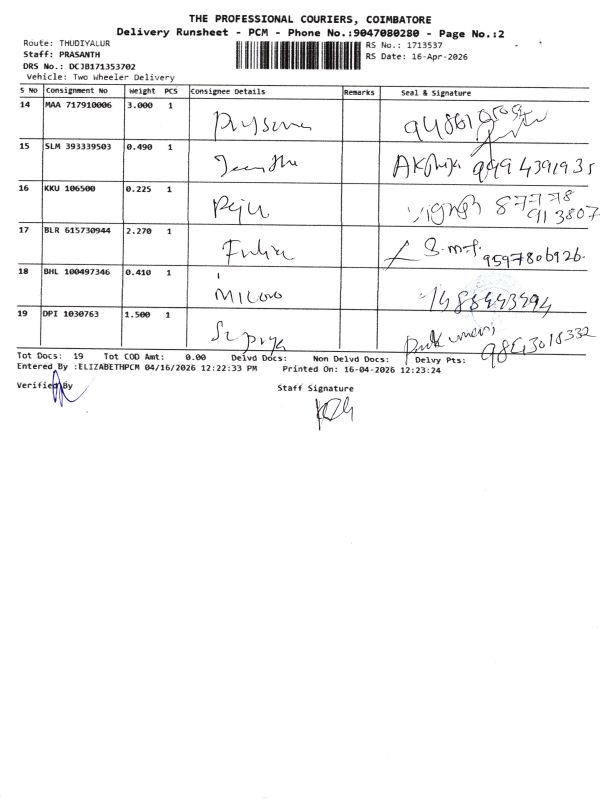 THE PROFESSIONAL COURIERS, COIMBATORE
Delivery Runsheet - PCM - Phone No.:9047080280 - Page No.:2
Route: THUDIYALUR
RS No.: 1713537
Staff: PRASANTH
RS Date: 16-Apr-2026
DRS No.: DCJB171353702
Vehicle: Two Wheeler Delivery
S No Consignment No Weight PCS Consignee Details Remarks Seal & Signature
14 MAA 717910006 3.000 1
15 SLM 393339503 0.490 1 9994391935
16 KKU 106500 0.225 1 Reju 87778
913807
17 BLR 615730944 2.270 1 S.m.f. 9597806926.
18 BHL 100497346 0.410 1
19 DPI 1030763 1.500 1 Supriya
Tot Docs: 19 Tot COD Amt: 0.00 Delvd Docs: Non Delvd Docs: Delvy Pts:
Entered By :ELIZABETHPCM 04/16/2026 12:22:33 PM Printed On: 16-04-2026 12:23:24
Verified By
Staff Signature